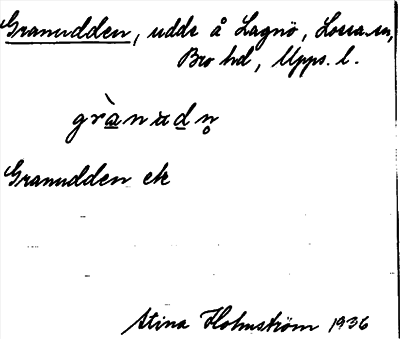 Granudden, udde å Lagnö, Lossa sn,
Bro hd, Upps. l.
grànudn̥
Granudden ek
Stina Holmström 1936